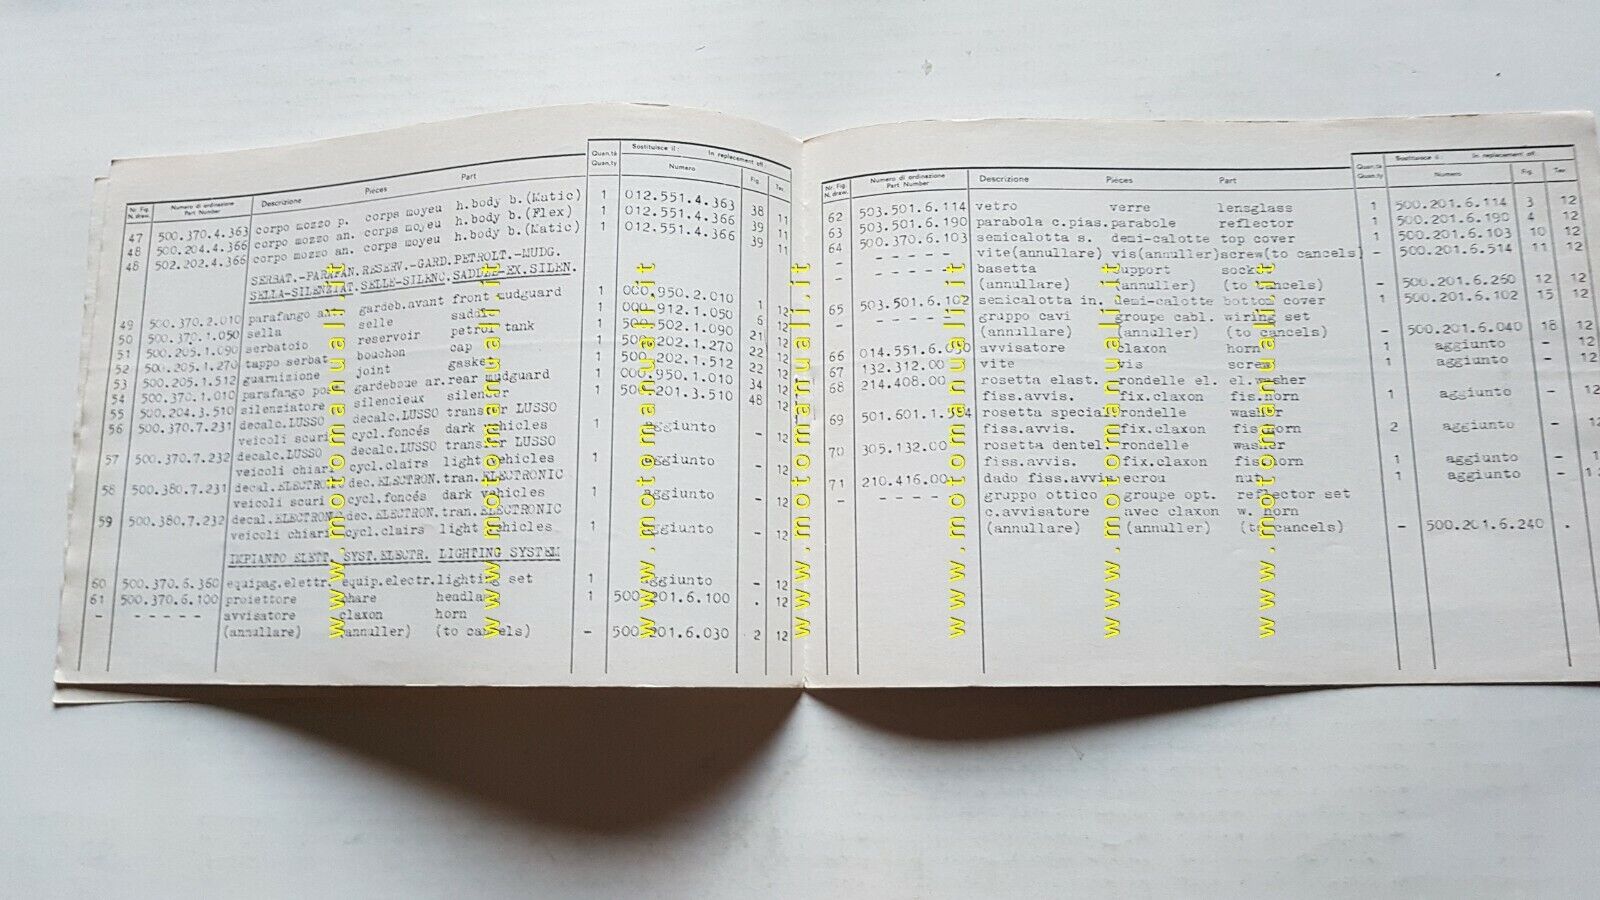 Nr. Fig. N. draw. Numero di ordinazione Part Number Descrizione Pièces Part Quan.tà Quan.ty Sostituisce il: In replacement off: Numero Fig. Tav.
47 500.370.4.363 corpo mozzo p. corps moyeu h.body b.(Matic) 1 012.551.4.363 38 11
48 500.204.4.366 corpo mozzo an. corps moyeu h.body b.(Flex) 1 012.551.4.366 39 11
48 502.202.4.366 corpo mozzo an. corps moyeu h.body b.(Matic) 1 012.551.4.366 39 11
SERBAT.-PARAFAN.RESERV.-GARD.PETROLT.-MUDG.
SELLA-SILENZIAT.SELLE-SILENC.SADDLE-EX.SILEN.
49 500.370.2.010 parafango ant. gardeb.avant front mudguard 1 000.950.2.010 1 12
50 500.370.1.050 sella selle saddle 1 000.912.1.050 6 12
51 500.205.1.090 serbatoio reservoir petrol tank 1 500.502.1.090 21 12
52 500.205.1.270 tappo serbat. bouchon cap 1 500.202.1.270 22 12
53 500.205.1.512 guarnizione joint gasket 1 500.202.1.512 22 12
54 500.370.1.010 parafango pos. gardeboue ar.rear mudguard 1 000.950.1.010 34 12
55 500.204.3.510 silenziatore silencieux silencer 1 500.201.3.510 48 12
56 500.370.7.231 decalc.LUSSO decalc.LUSSO transfer LUSSO
veicoli scuri cycl.foncés dark vehicles 1 aggiunto - 12
57 500.370.7.232 decalc.LUSSO decalc.LUSSO transfer LUSSO
veicoli chiari cycl.clairs light vehicles 1 aggiunto - 12
58 500.380.7.231 decal.ELECTRONIC dec.ELECTRON.tran.ELECTRONIC
veicoli scuri cycl.foncés dark vehicles 1 aggiunto - 12
59 500.380.7.232 decal.ELECTRONIC dec.ELECTRON.tran.ELECTRONIC
veicoli chiari cycl.clairs light vehicles 1 aggiunto - 12
IMPIANTO ELETT. SYST.ELECTR. LIGHTING SYSTEM
60 500.370.6.360 equipag.elettr. equip.electr.lighting set 1 aggiunto - 12
61 500.370.6.100 proiettore phare headlamp 1 500.201.6.100 . 12
- - - - - - avvisatore claxon horn
(annullare) (annuller) (to cancels) - 500.201.6.030 2 12
Nr. Fig. N. draw. Numero di ordinazione Part Number Descrizione Pièces Part Quan.tà Quan.ty Sostituisce il: In replacement off: Numero Fig. Tav.
62 503.501.6.114 vetro verre lensglass 1 500.201.6.114 3 12
63 503.501.6.190 parabola c.pias.parabole reflector 1 500.201.6.190 4 12
64 500.370.6.103 semicalotta s. demi-calotte top cover 1 500.201.6.103 10 12
- - - - - - vite(annullare) vis(annuller)screw(to cancels) - 500.201.6.514 11 12
- - - - - - basetta support socket
(annullare) (annuller) (to cancels) - 500.201.6.260 12 12
65 503.501.6.102 semicalotta in. demi-calotte bottom cover 1 500.201.6.102 15 12
- - - - - - gruppo cavi groupe cabl. wiring set
(annullare) (annuller) (to cancels) - 500.201.6.040 18 12
66 014.551.6.030 avvisatore claxon horn 1 aggiunto - 12
67 132.312.00 vite vis screw 1 aggiunto - 12
68 214.408.00 rosetta elast. rondelle el. el.washer
fiss.avvis. fix.claxon fis.horn 1 aggiunto - 12
69 501.601.1.504 rosetta special.rondelle washer
fiss.avvis. fix.claxon fis.horn 2 aggiunto - 12
70 305.132.00 rosetta dentel. rondelle washer
fiss.avvis. fix.claxon fis.horn 1 aggiunto -
71 210.416.00 dado fiss.avvis.ecrou nut 1 aggiunto - 12
- - - - - - gruppo ottico groupe opt. reflector set
c.avvisatore avec claxon w. horn
(annullare) (annuller) (to cancels) - 500.201.6.240 .
www.motomanuali.it
www.motomanuali.it
www.motomanuali.it
www.motomanuali.it
www.motomanuali.it
www.motomanuali.it
www.motomanuali.it